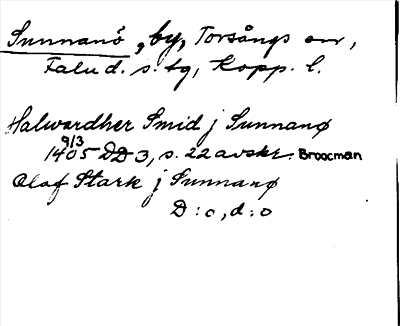 Sunnanö, by, Torsångs sn,
Falu d. s. tg, Kopp. l.
Halwardher Smid j Sunnanø
9/3
1405 DD 3, s. 22 avskr. Broocman
Olaf Stark j Sunnanø
D:o, d:o